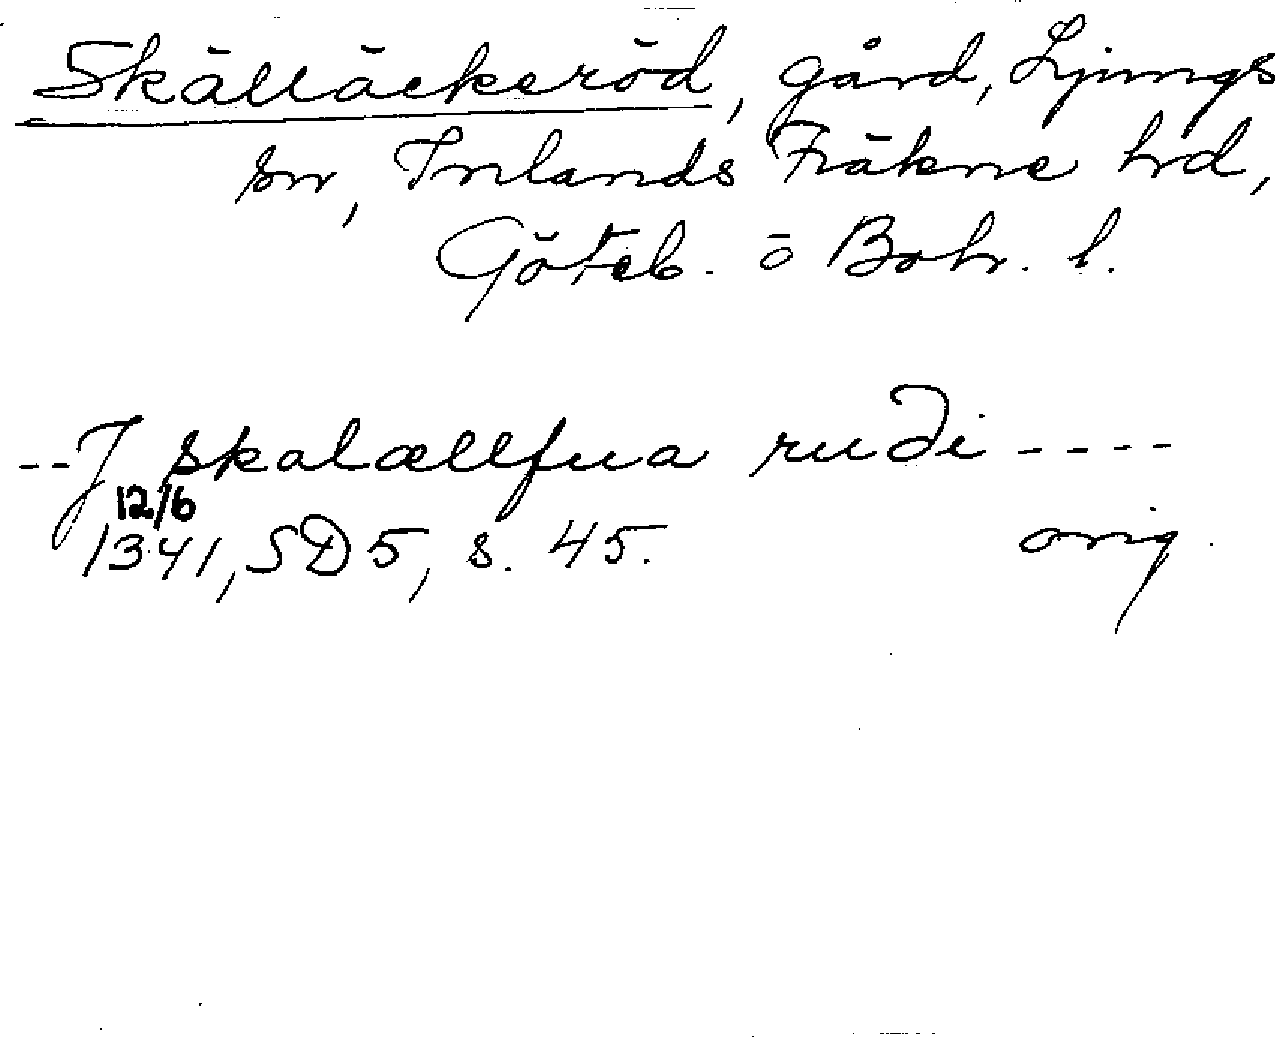 Skälläckeröd, gård, Ljungs
sn, Inlands Fräkne hrd,
Göteb. o Boh. l.
--J skalællfua rudi ----
12/6
1341, SD 5, s. 45. orig.